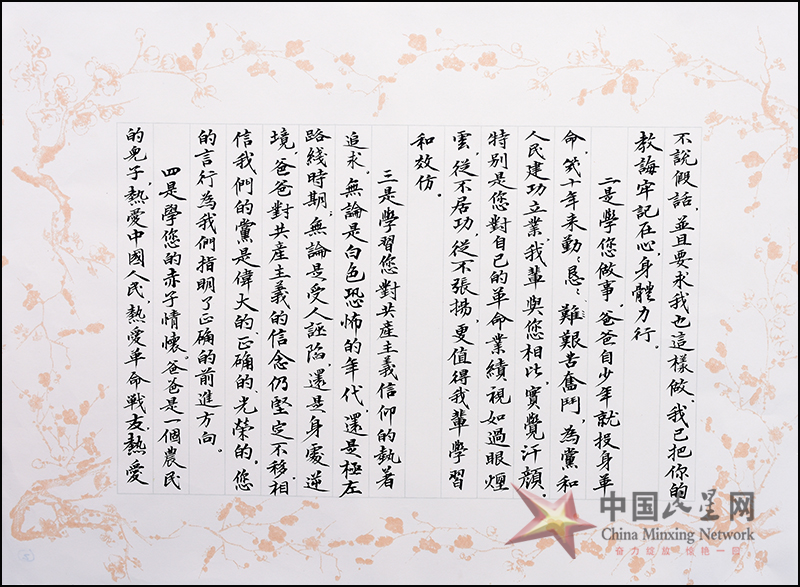 不說假話，並且要求我也這樣做、我已把你的
教誨牢記在心，身體力行。
二是學您做事，爸爸自少年就投身革
命，幾十年来勤〻恳〻，難艱苦奮鬥，為黨和
人民建功立業，我輩與您相比，實覺汗顔，
特别是您對自己的革命業績視如過眼煙
雲，從不居功，從不張揚，更值得我輩學習
和效仿。
三是學習您對共產主義信仰的執着
追求。無論是白色恐怖的年代，還是極左
路綫時期，無論是受人誣陷，還是身處逆
境，爸爸對共產主義的信念仍堅定不移，相
信我們的黨是偉大的、正确的、光榮的。您
的言行為我們指明了正确的前進方向。
四是學您的赤子情懷。爸爸是一個農民
的兒子，熱愛中國人民，熱愛革命戰友，熱愛
中国民星网
China Minxing Network
奋力绽放 惊艳一回